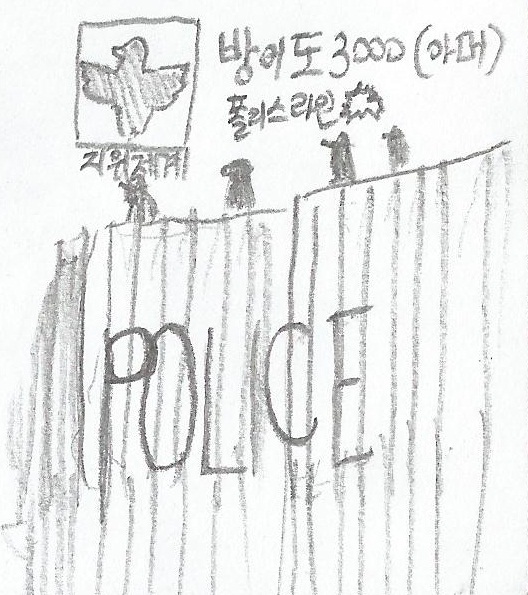 방어도 3000 (아머)
폴리스라인
지위체계
POLICE